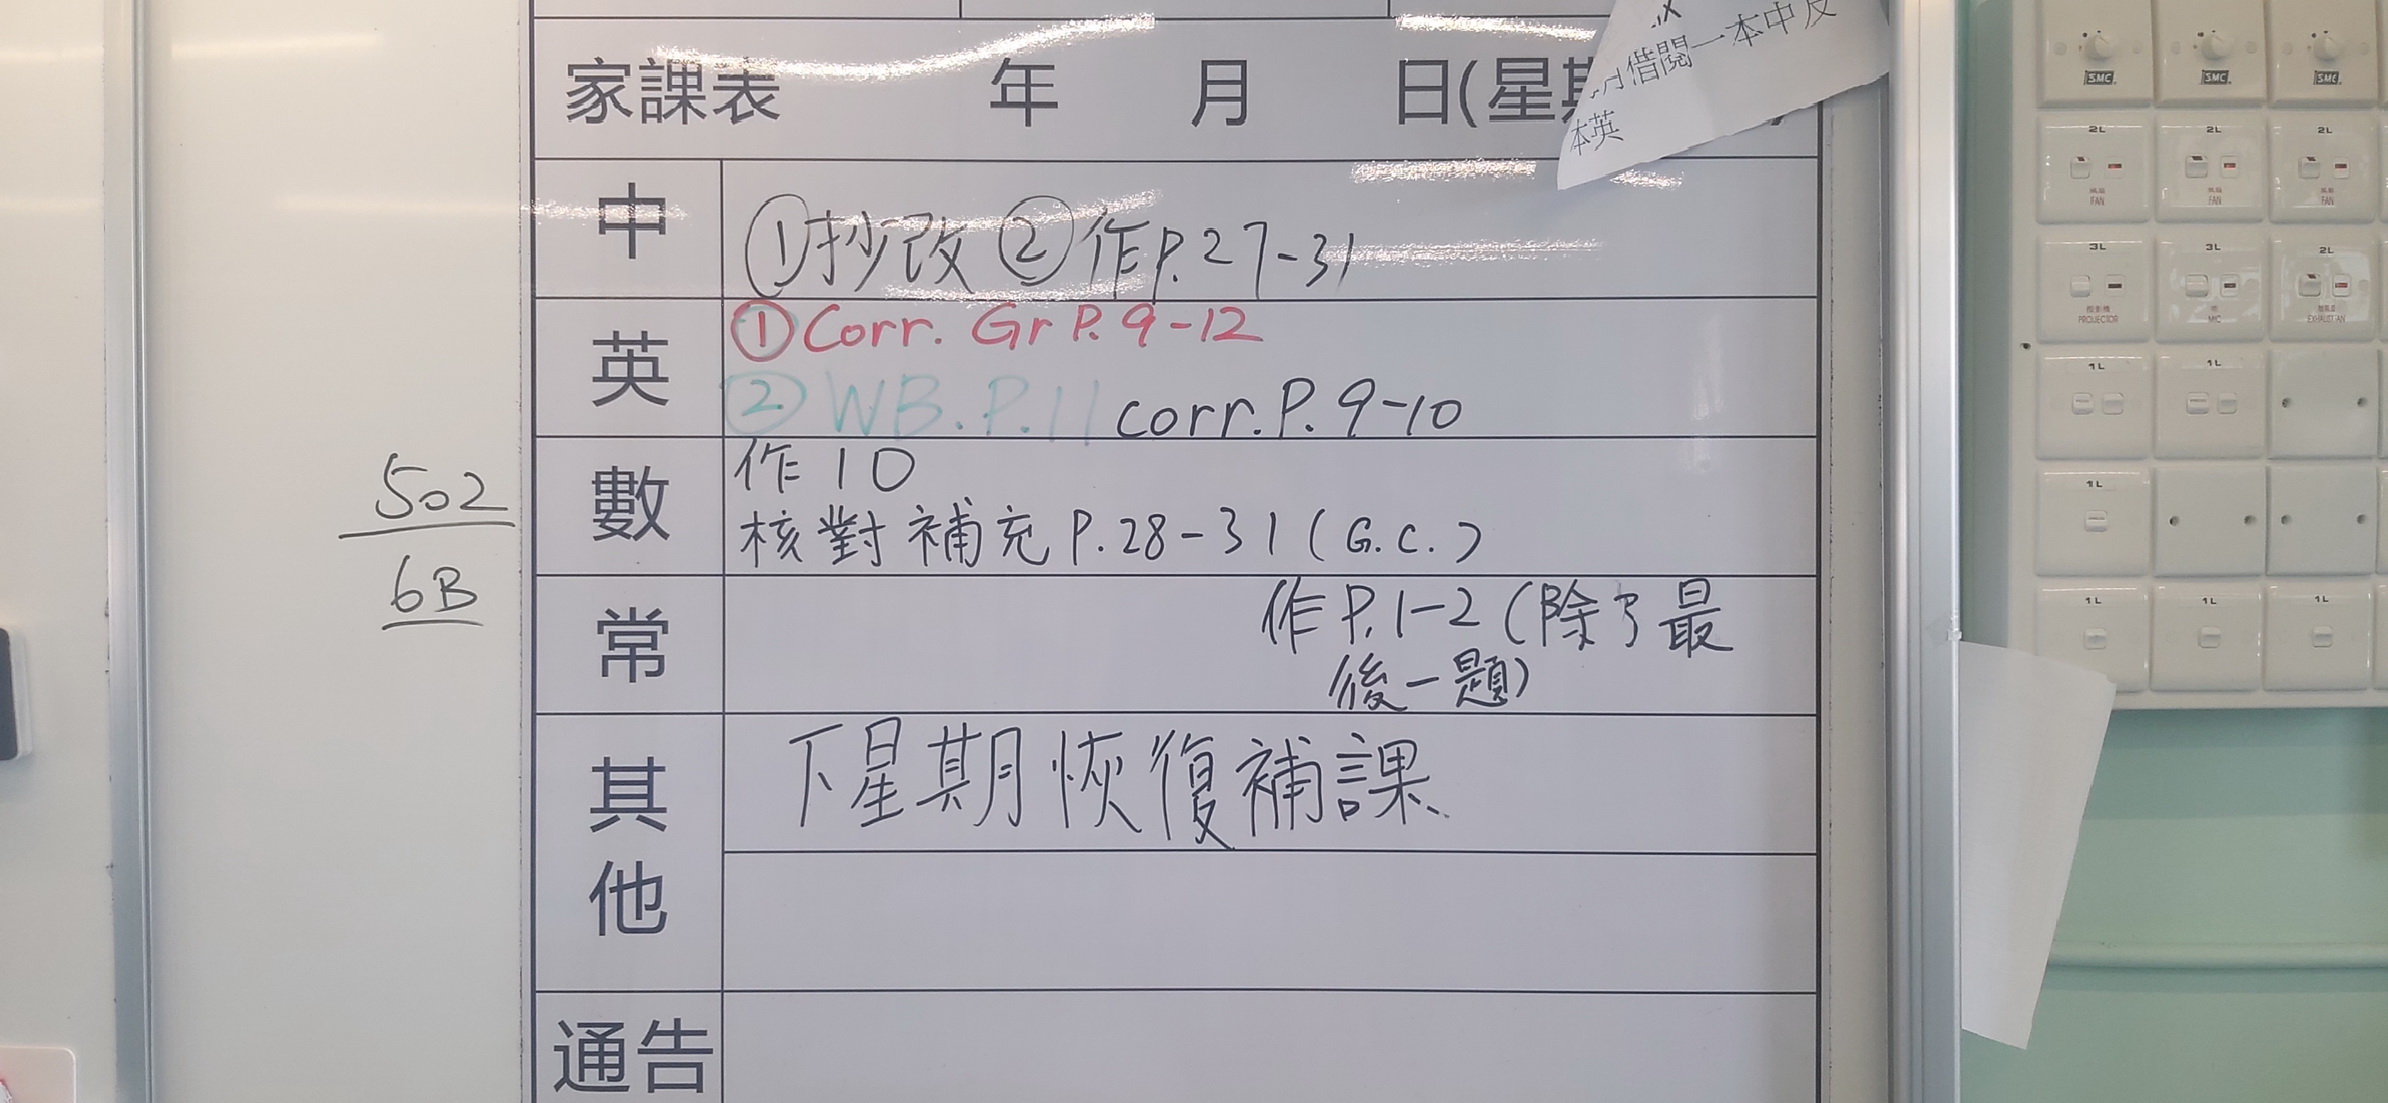 家課表 年 月 日(星期
借閱一本中
本英
中 ①抄改 ②作P.27-31
英 ①Corr. Gr P. 9-12
②WB.P.11 corr.P. 9-10
數 作10
核對補充P.28-31(G.C.)
常 作P.1-2(除了最
後一題)
其他 下星期恢復補課
通告
502
6B
SMC SMC SMC
2L 2L 2L
FAN FAN FAN
3L 3L 2L
PROJECTOR MIC EXHAUST FAN
1L 1L
1L
1L 1L 1L